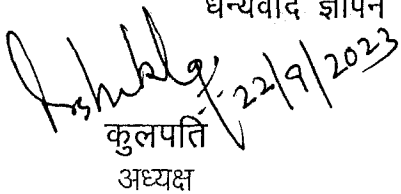 धन्यवाद ज्ञापन
22/9/2023
कुलपति
अध्यक्ष